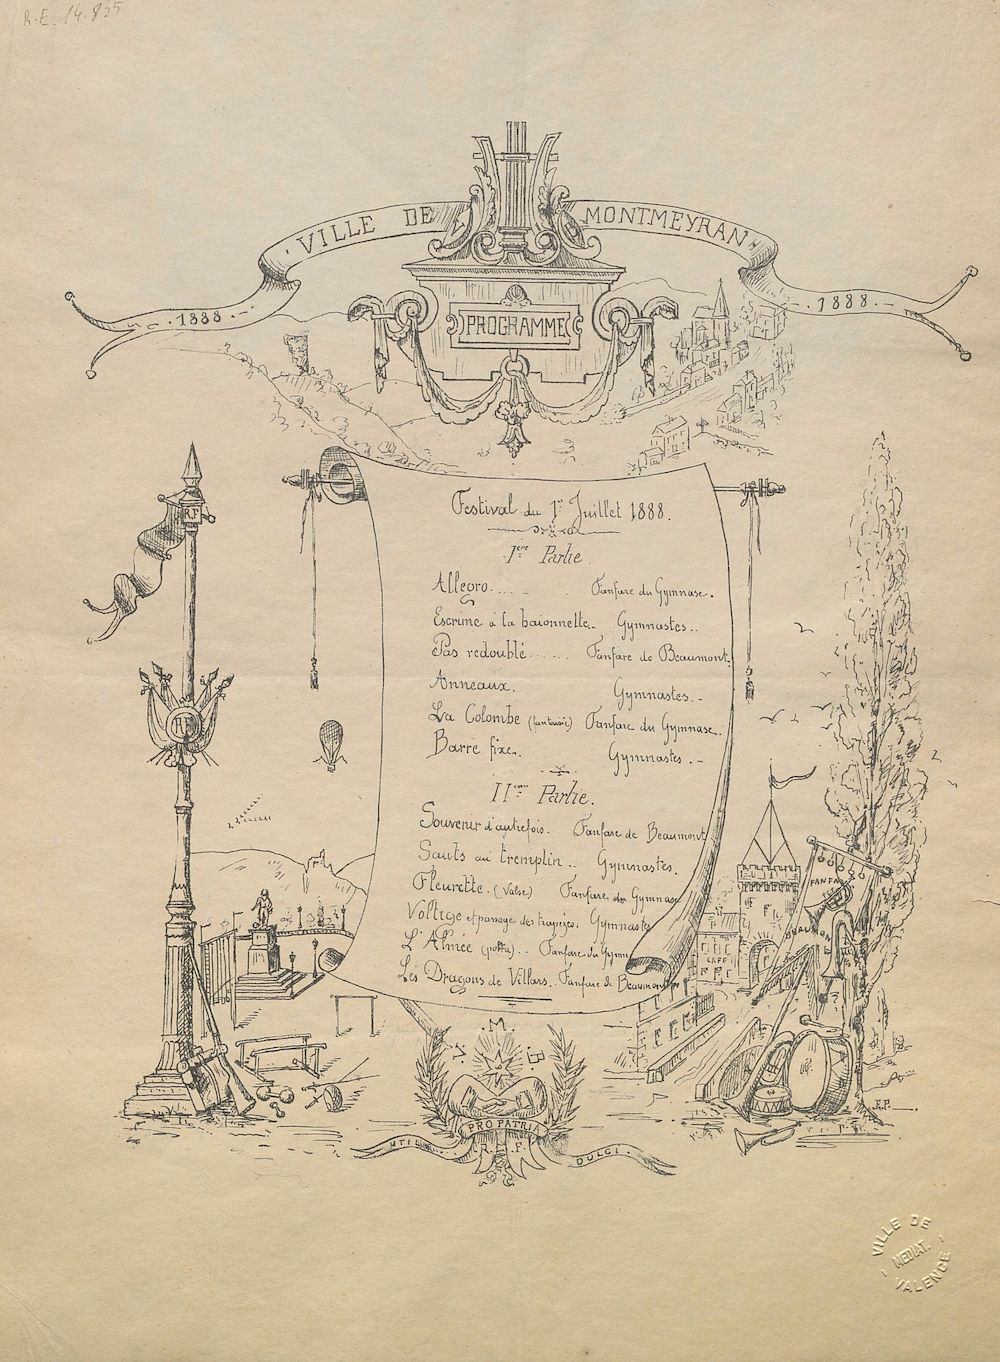 R.E. 14.855
VILLE DE MONTMEYRAN
1888
1888
PROGRAMME
Festival du 1er Juillet 1888.
Ière Partie.
Allegro..... Fanfare du Gymnase.
Escrime à la baïonnette.. Gymnastes..
Pas redoublé...... Fanfare de Beaumont.
Anneaux. Gymnastes..
La Colombe (fantaisie) Fanfare du Gymnase..
Barre fixe. Gymnastes.
IIème Partie.
Souvenir d'autrefois. Fanfare de Beaumont
Sauts au tremplin.. Gymnastes.
Fleurette. (Valse) Fanfare du Gymnase
Voltige et passage des trapèzes. Gymnastes
L'Almée (polka)... Fanfare du Gymn
Les Dragons de Villars.. Fanfare de Beaumont
RF
RF
CAFÉ
FANFA
BEAUMON
V. M. B
PRO PATRIA
R. F
UTILE DULCI
E.P.
VILLE DE
MEDIAT.
VALENCE